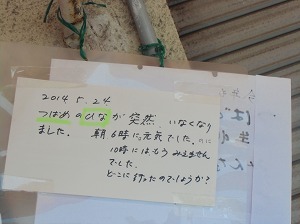 2014 5.24
つばめのひなが突然 いなくなり
ました. 朝 6時に元気でした. のに
10時にはもう みえません
でした.
どこに行ったのでしょうか?